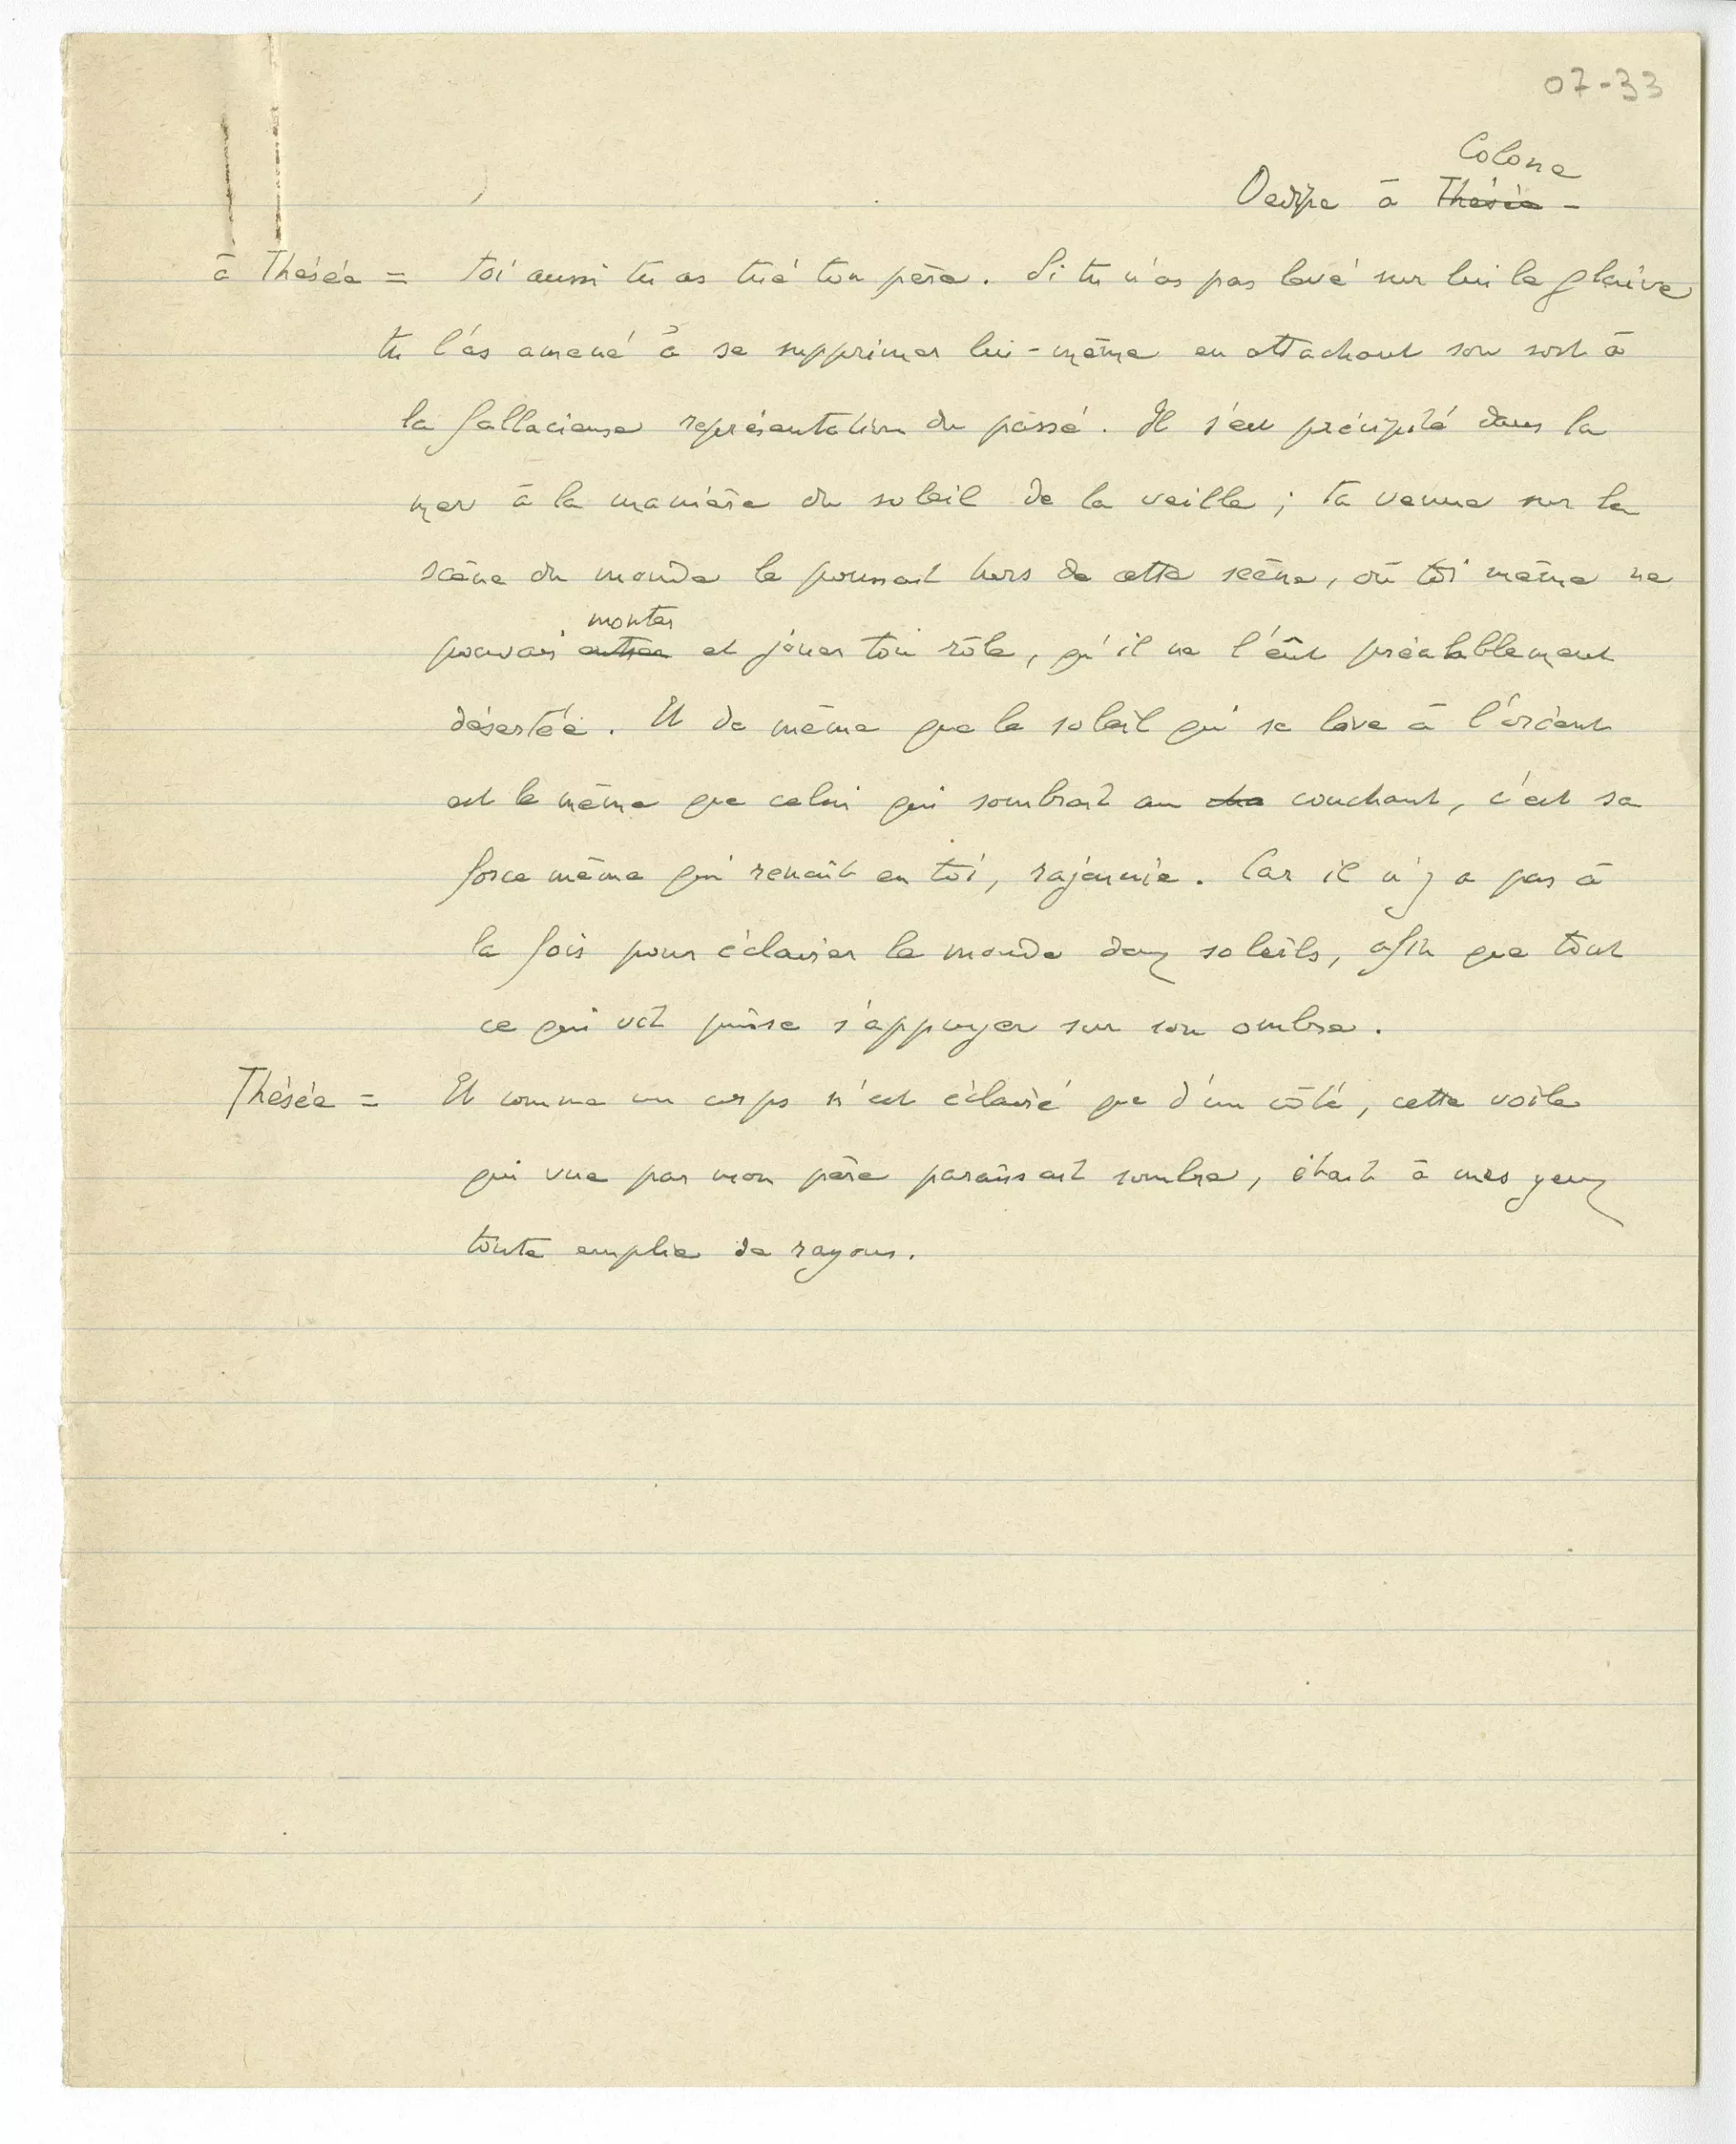 07-33
Colone
Oedipe à Thésée -
à Thésée = toi aussi tu as tué ton père. Si tu n'as pas levé sur lui le glaive
tu l'as amené à se supprimer lui-même en attachant son sort à
la fallacieuse représentation du passé. Il s'est précipité dans la
mer à la manière du soleil de la veille ; ta venue sur la
scène du monde le poussait hors de cette scène, où toi même ne
monter
pouvais entrer et jouer ton rôle, qu'il ne l'eût préalablement
désertée. Et de même que le soleil qui se lève à l'orient
est le même que celui qui sombrait au couchant, c'est sa
force même qui renaît en toi, rajeunie. Car il n'y a pas à
la fois pour éclairer le monde deux soleils, afin que tout
ce qui vit puisse s'appuyer sur son ombre.
Thésée = Et comme un corps n'est éclairé que d'un côté, cette voile
qui vue par mon père paraissait sombre, était à mes yeux
toute emplie de rayons.